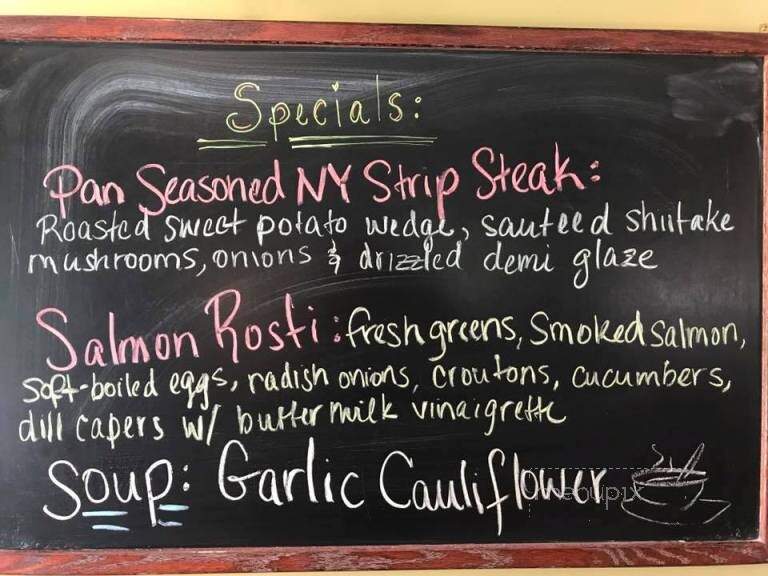 Specials:
Pan Seasoned NY Strip Steak:
Roasted sweet potato wedge, sauteed shiitake
mushrooms, onions & drizzled demi glaze
Salmon Rosti: fresh greens, Smoked salmon,
soft-boiled eggs, radish onions, croutons, cucumbers,
dill capers w/ buttermilk vinaigrette
Soup: Garlic Cauliflower
menupix